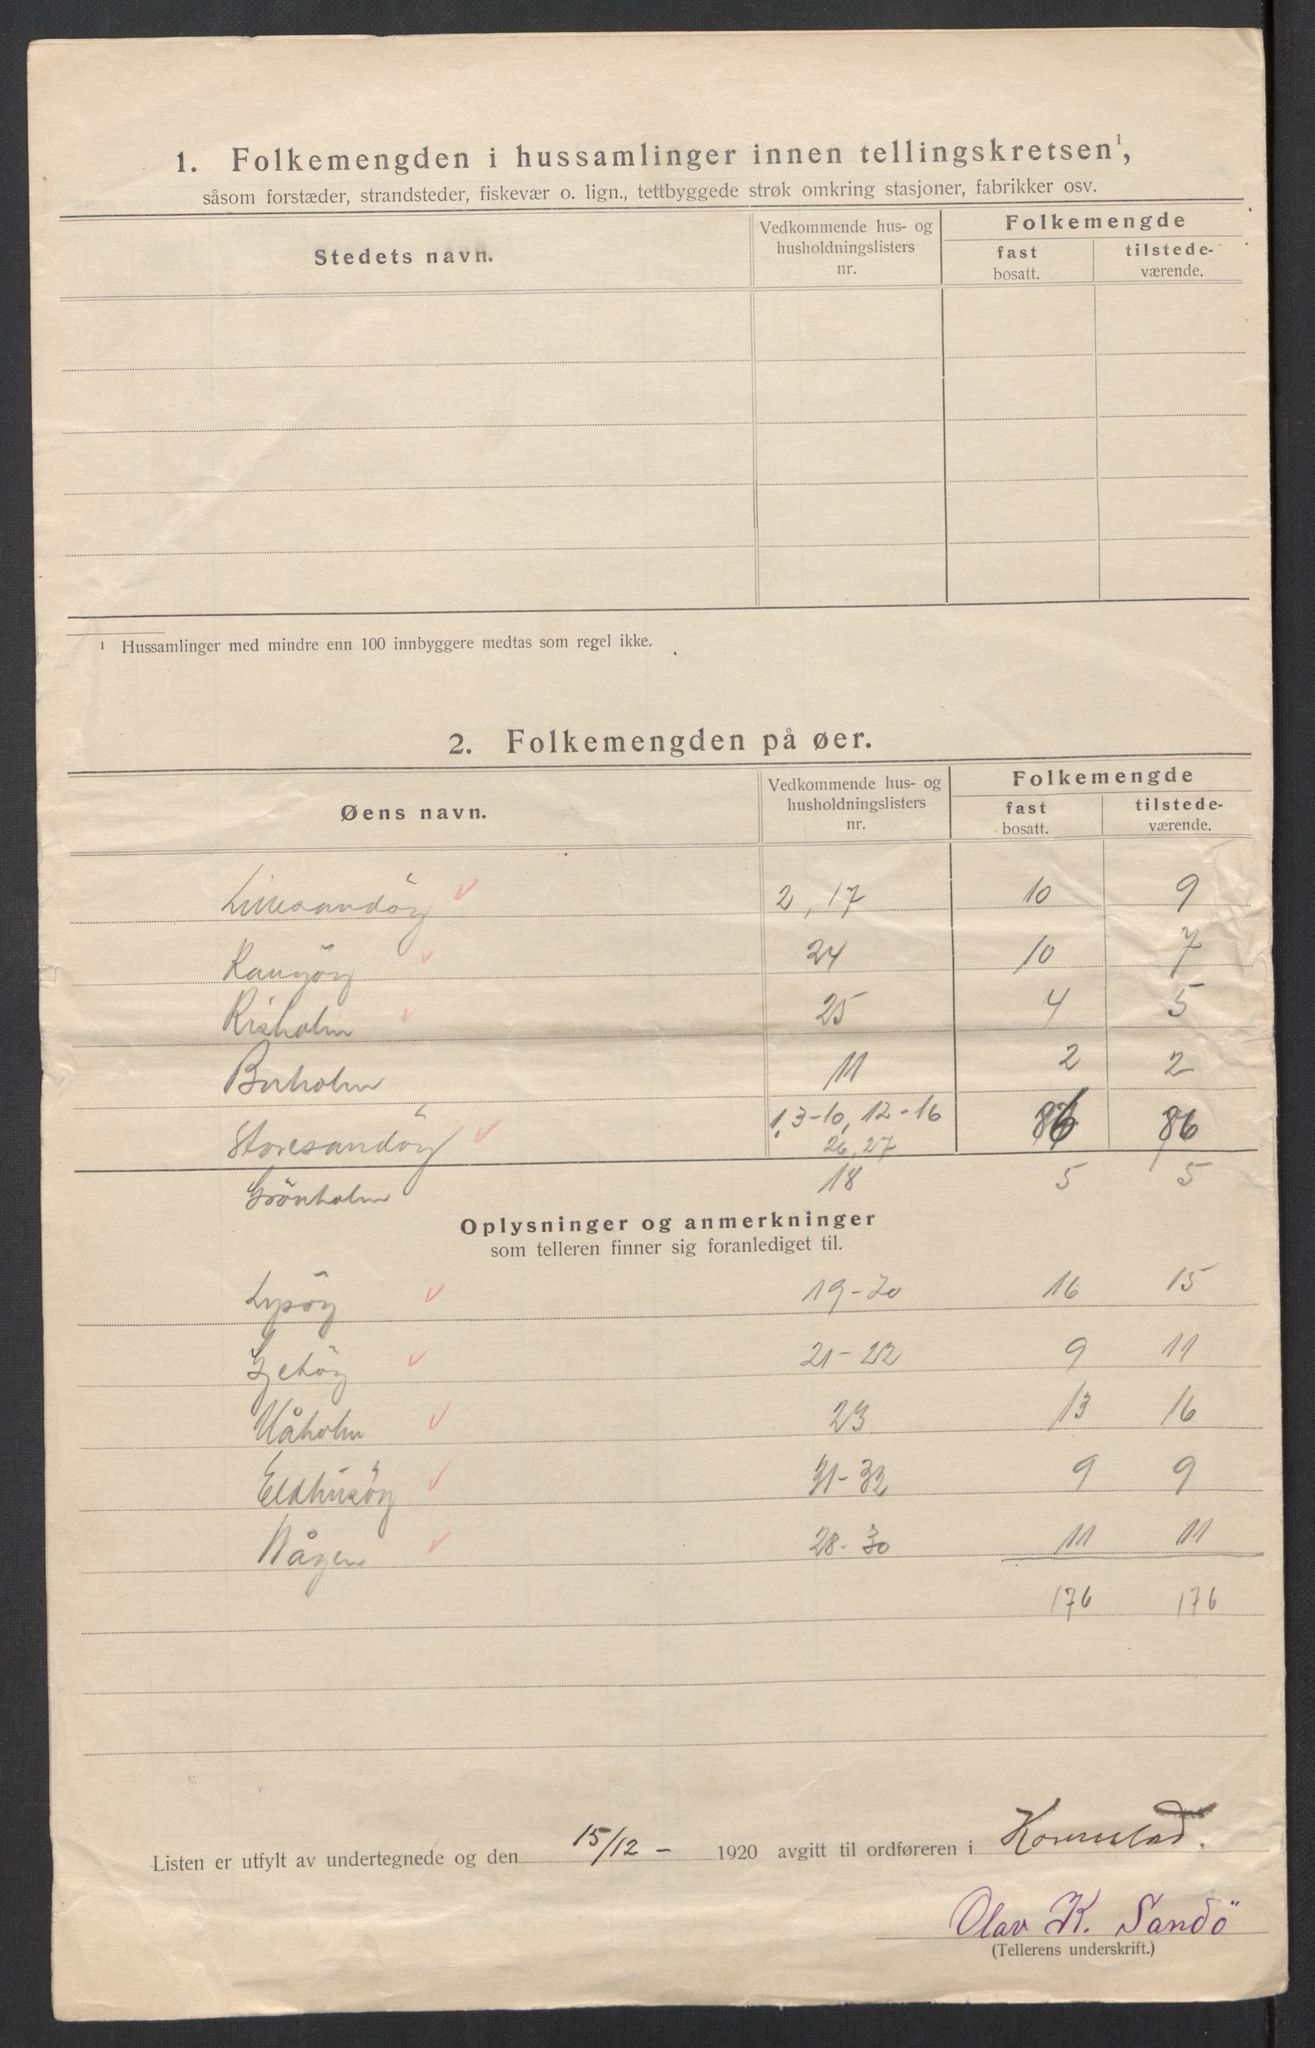 1. Folkemengden i hussamlinger innen tellingskretsen¹,
såsom forstæder, strandsteder, fiskevær o. lign., tettbyggede strøk omkring stasjoner, fabrikker osv.
Stedets navn. Vedkommende hus- og husholdningslisters nr. Folkemengde fast bosatt. tilstede-værende.
¹ Hussamlinger med mindre enn 100 innbyggere medtas som regel ikke.
2. Folkemengden på øer.
Øens navn. Vedkommende hus- og husholdningslisters nr. Folkemengde fast bosatt. tilstede-værende.
Lillesandöy 2, 17 10 9
24 10 7
Risholm 25 4 5
Burholm 11 2 2
Storesandöy 1, 3-10, 12-16 86 86
26, 27
Grönholm 18 5 5
Oplysninger og anmerkninger
som telleren finner sig foranlediget til.
Lysöy 19-20 16 15
Gjetöy 21-22 9 11
Måholm 23 13 16
Eldhusöy 31-32 9 9
Vågen 28-30 11 11
176 176
Listen er utfylt av undertegnede og den 15/12 - 1920 avgitt til ordføreren i
Olav K. Sandö
(Tellerens underskrift.)